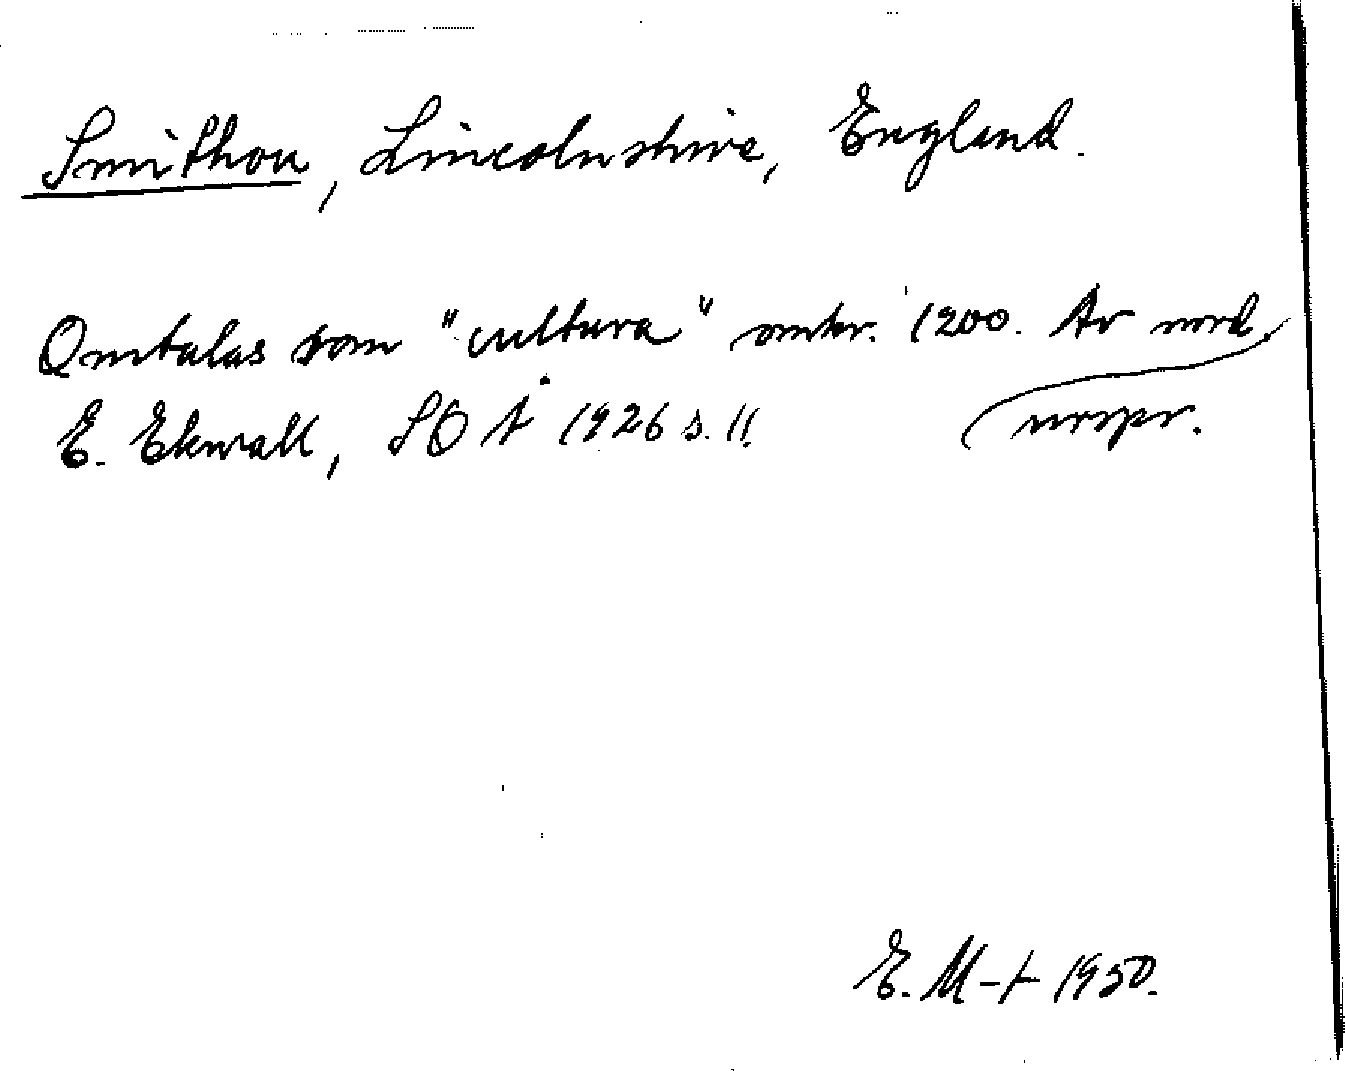 Smithou, Lincolnshire, England.
Omtalas som "cultura" omkr. 1200. Av nord.
urspr.
E. Ekwall, SOÅ 1926 s. 11.
E. M-t 1950.